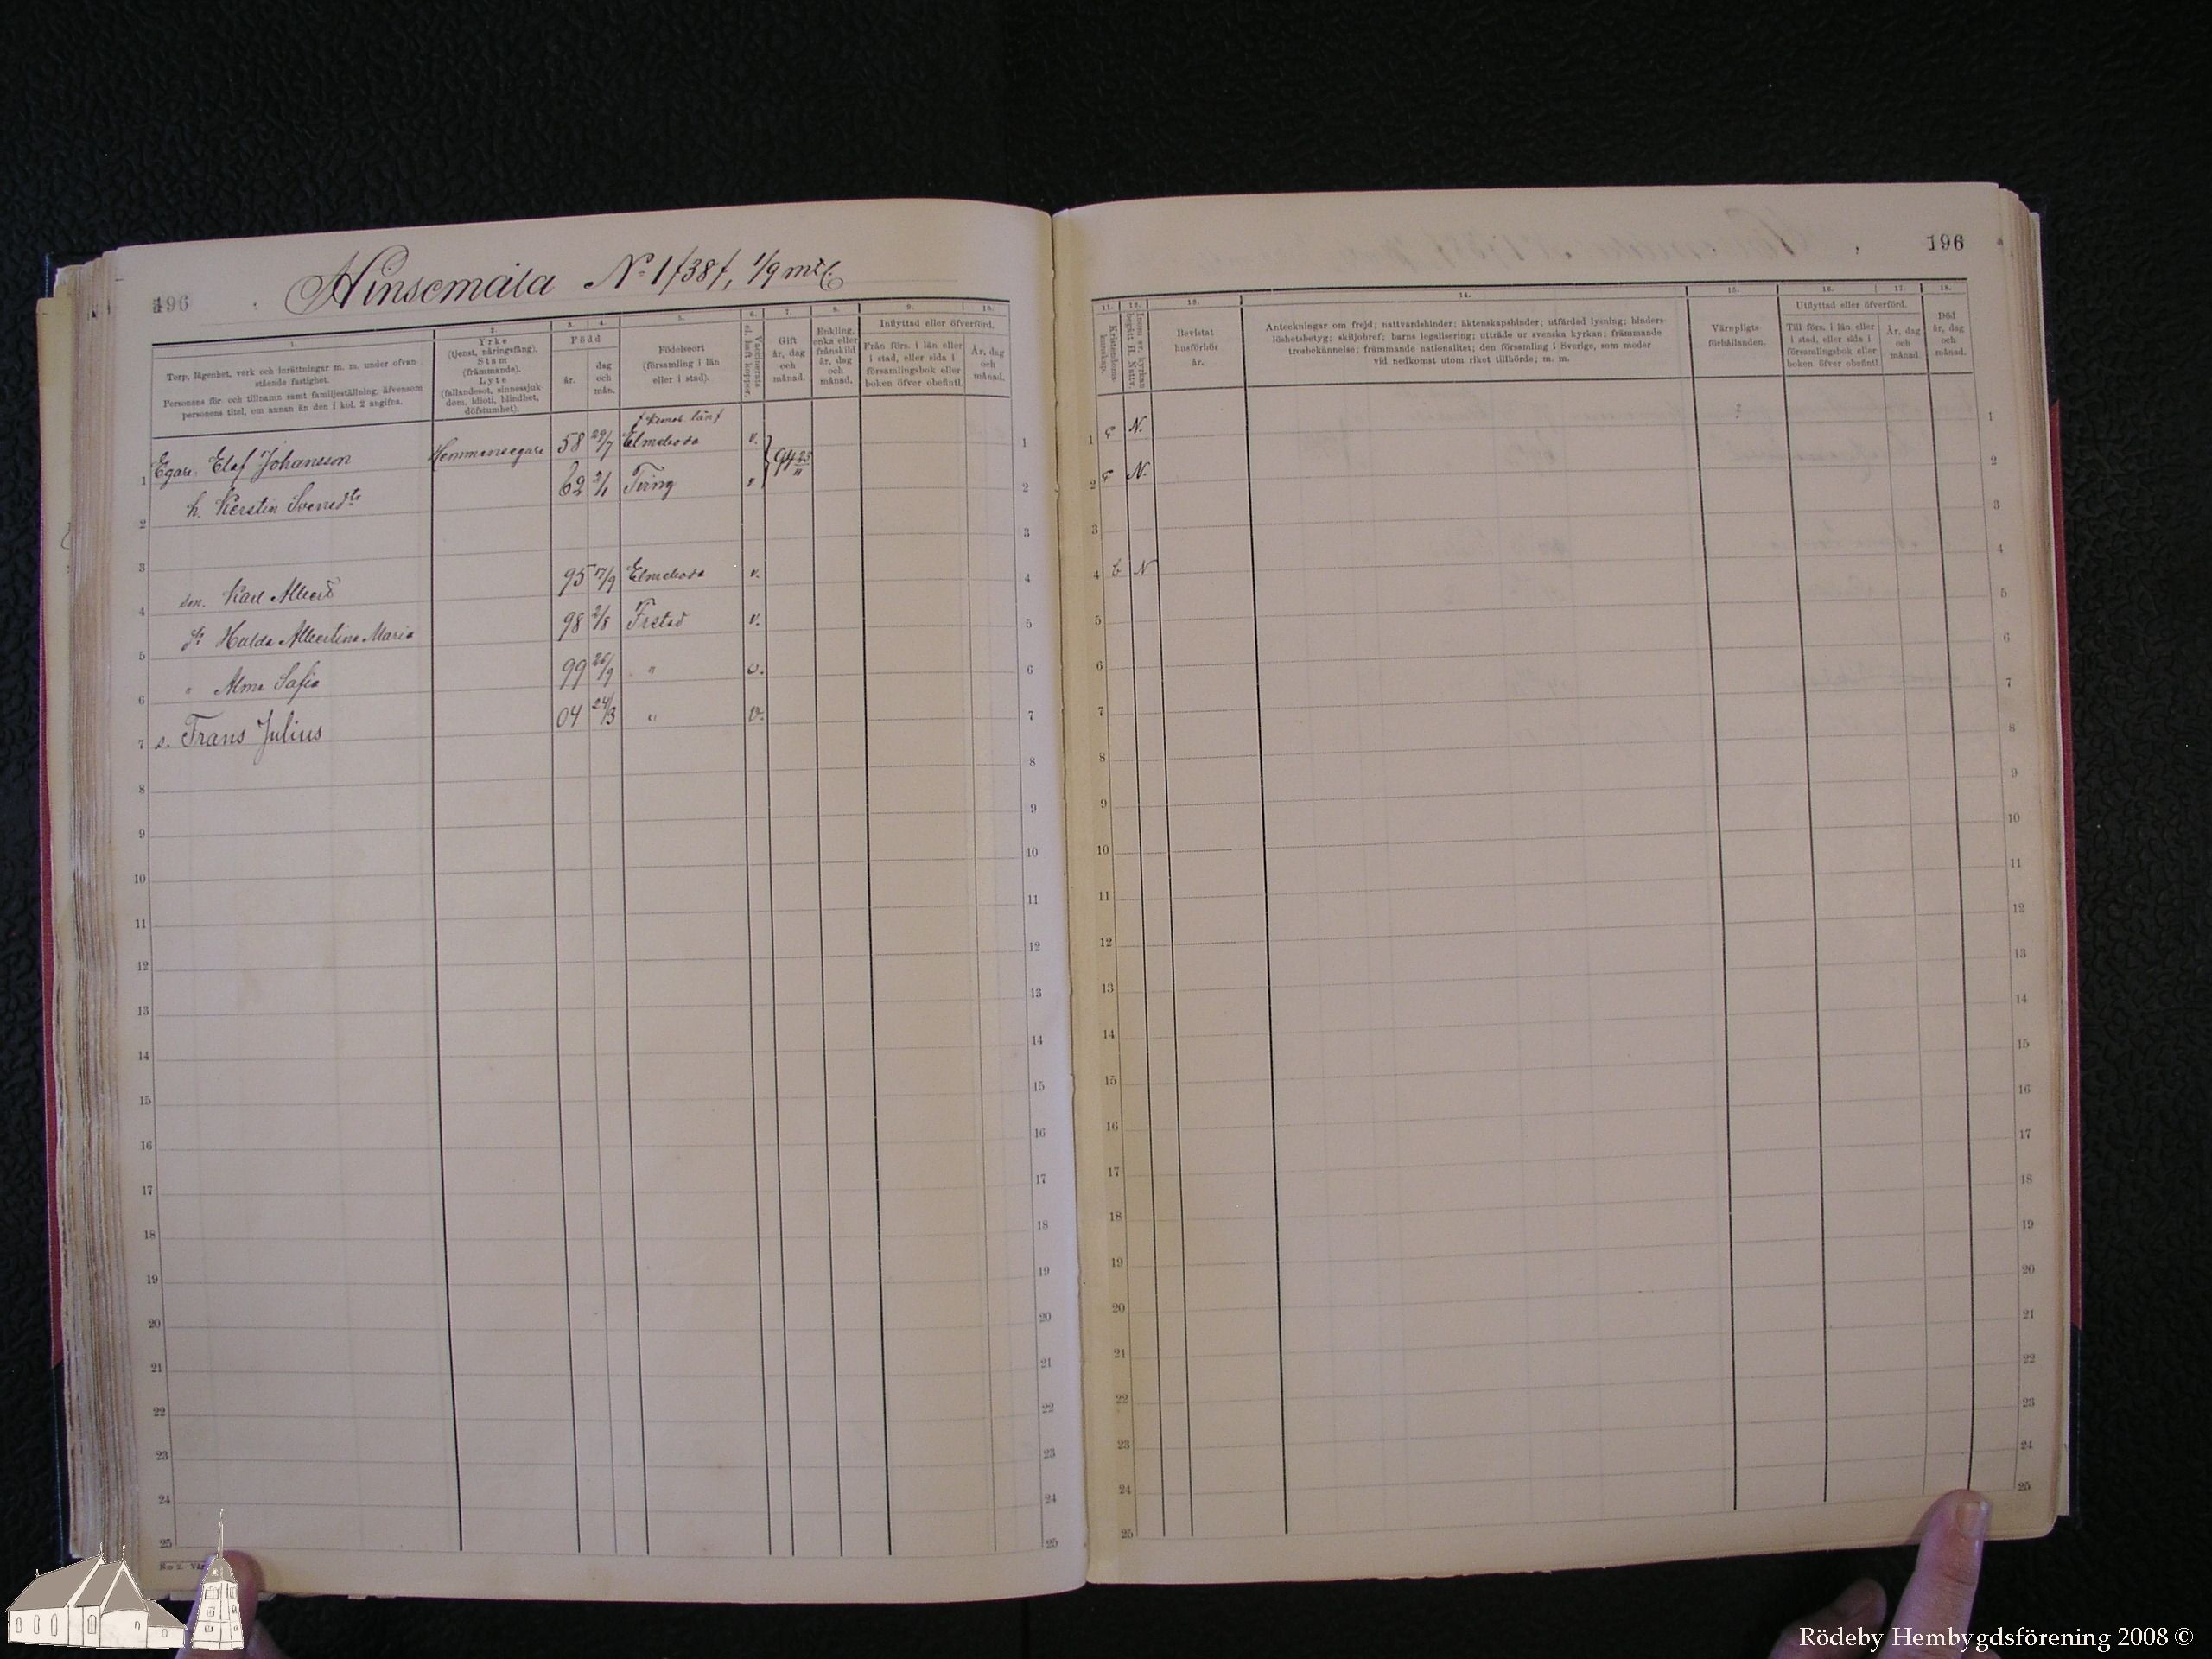 196
Hinsemåla No 1 f38f, 1/9 mtl.
1. 2. 3. 4. 5. 6. 7. 8. 9. 10.
Torp, lägenhet, verk och inrättningar m. m. under ofvan-
stående fastighet.
Personens för- och tillnamn samt familjeställning, äfvensom
personens titel, om annan än den i kol. 2 angifna.
Yrke
(tjenst, näringsfång).
Stam
(främmande).
Lyte
(fallandesot, sinnessjuk-
dom, idioti, blindhet,
döfstumhet).
Född
år.
dag
och
mån.
Födelseort
(församling i län
eller i stad).
Vaccinerats
el. haft koppor.
Gift
år, dag
och
månad.
Enkling,
enka eller
frånskild
år, dag
och
månad.
Inflyttad eller öfverförd.
Från förs. i län eller
i stad, eller sida i
församlingsbok eller
boken öfver obefintl.
År, dag
och
månad.
1 Egare Elof Johansson Hemmansegare 58 29/7 (Kronob. län) Elmeboda v. 94 23/11 1
2 h. Kerstin Svensdtr 62 2/1 Tving v 2
3 3
4 son. Karl Albert 95 17/9 Elmeboda v. 4
5 dr Hulda Albertina Maria 98 2/8 Frstad v. 5
6 " Alma Sofia 99 26/9 " v. 6
7 s. Frans Julius 04 24/3 " v. 7
8 8
9 9
10 10
11 11
12 12
13 13
14 14
15 15
16 16
17 17
18 18
19 19
20 20
21 21
22 22
23 23
24 24
25 25
196
11. 12. 13. 14. 15. 16. 17. 18.
Kristendoms-
kunskap.
Inom sv. kyrkan
begått H. Nattv.
Bevistat
husförhör
år.
Anteckningar om frejd; nattvardshinder; äktenskapshinder; utfärdad lysning; hinders-
löshetsbetyg; skiljobref; barns legalisering; utträde ur svenska kyrkan; främmande
trosbekännelse; främmande nationalitet; den församling i Sverige, som moder
vid nedkomst utom riket tillhörde; m. m.
Värnpligts-
förhållanden.
Utflyttad eller öfverförd.
Till förs. i län eller
i stad, eller sida i
församlingsbok eller
boken öfver obefintl.
År, dag
och
månad.
Död
år, dag
och
månad.
1 N. 1
2 N. 2
3 3
4 b N 4
5 5
6 6
7 7
8 8
9 9
10 10
11 11
12 12
13 13
14 14
15 15
16 16
17 17
18 18
19 19
20 20
21 21
22 22
23 23
24 24
25 25
Rödeby Hembygdsförening 2008 ©